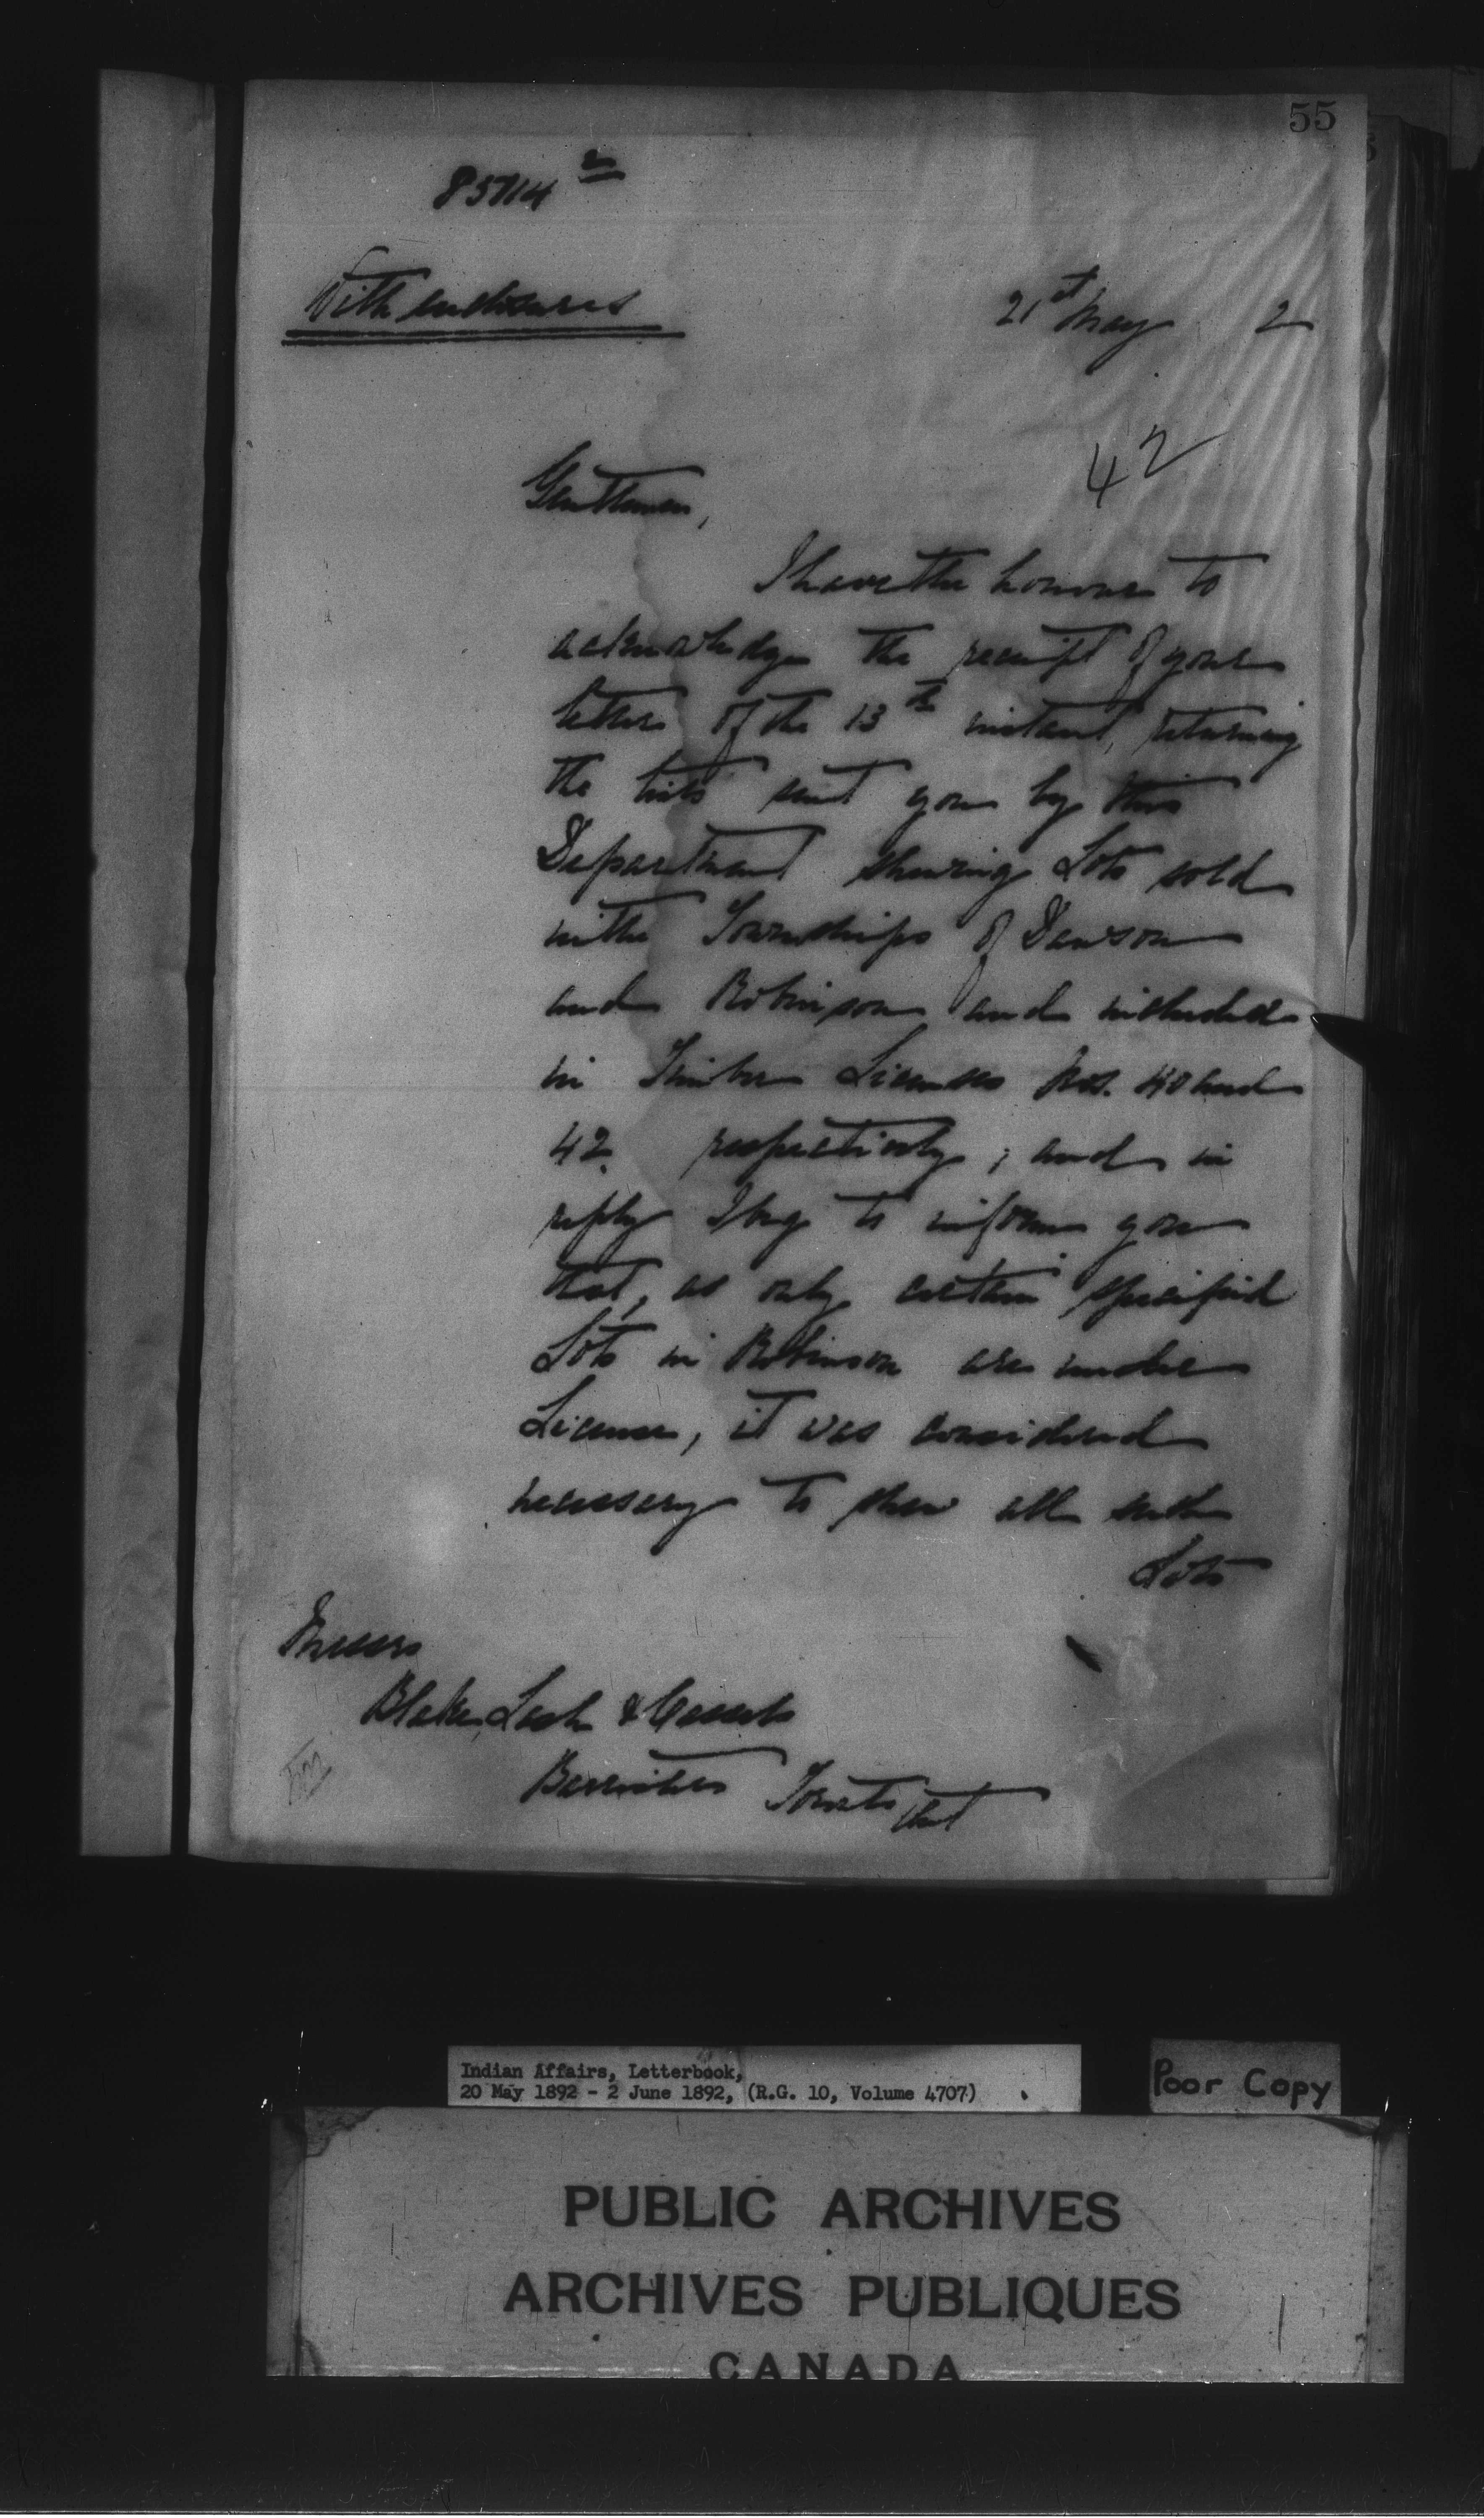 55
With enclosures
21st May 2
42
Gentlemen,
I have the honour to
acknowledge the receipt of your
letter of the 13th instant, returning
the lists sent you by this
Department shewing Lots sold
in the Townships of Dawson
and Robinson and included
in Timber Licenses Nos. 40 and
42 respectively; and in
reply I beg to inform you
that, as only certain specified
Lots in Robinson are under
License, it was considered
necessary to shew all such
Lots
Messrs
Blake, Lash & Cassels
Barristers Toronto Ont
Indian Affairs, Letterbook,
20 May 1892 - 2 June 1892, (R.G. 10, Volume 4707)
Poor Copy
PUBLIC ARCHIVES
ARCHIVES PUBLIQUES
CANADA